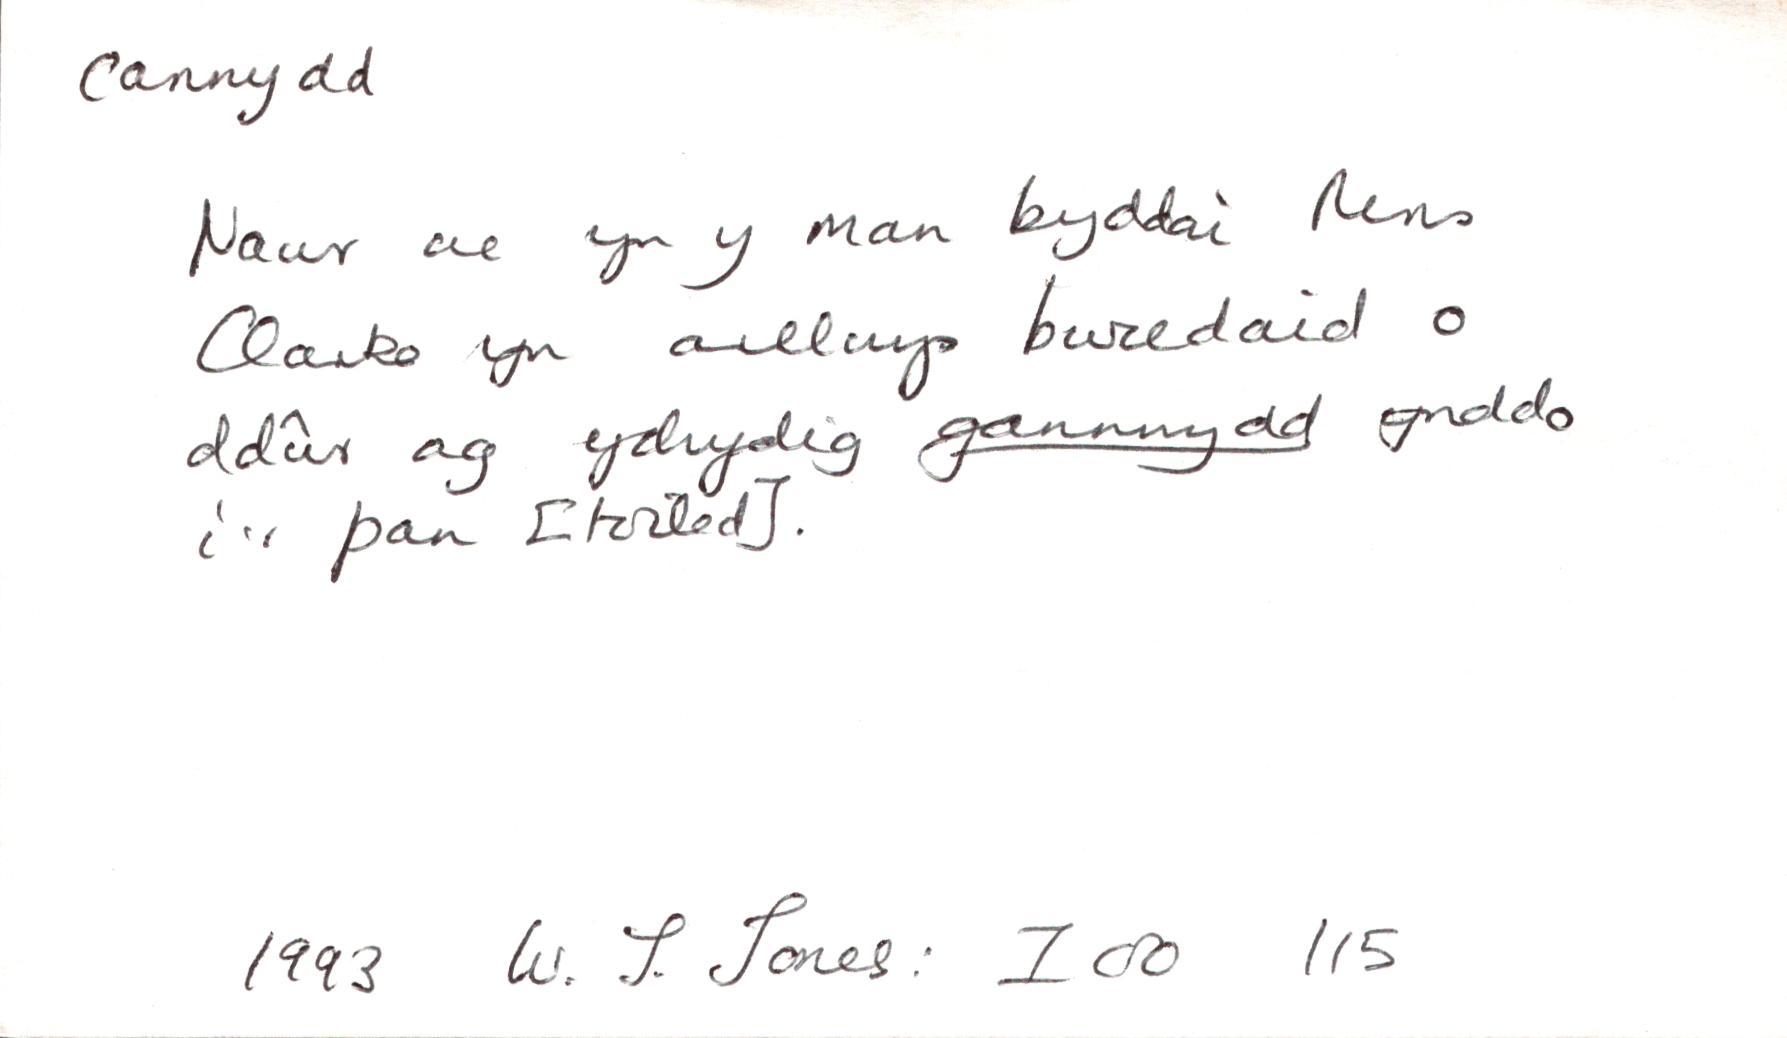 Cannydd
Nawr ac yn y man byddai Rens
Clarke yn arllwys bwcedaid o
ddŵr ag ychydig gannnydd ynddo
i'r pan [toiled].
1993 W. J. Jones: I 115